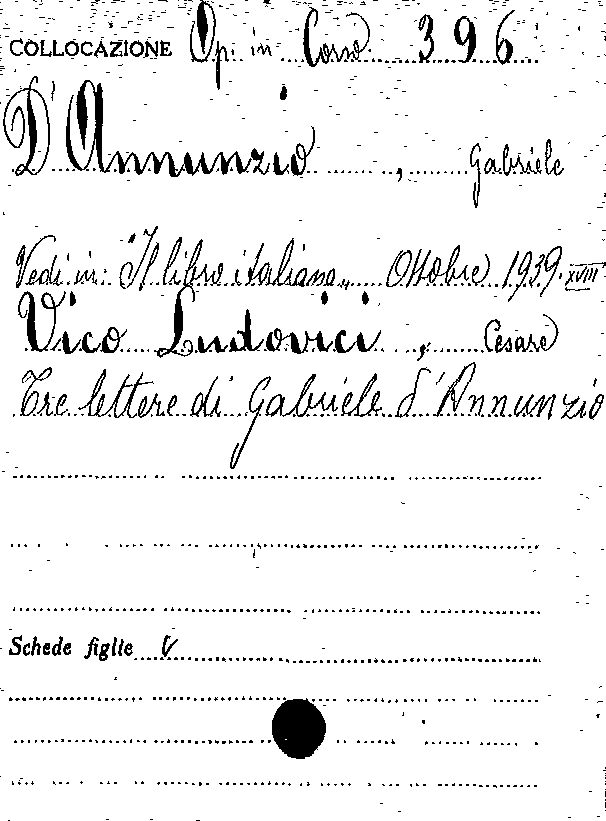 COLLOCAZIONE Op. in Corso 396
D'Annunzio, Gabriele
Vedi in: "Il libro italiano„ Ottobre 1939. XVIII
Vico Ludovici, Cesare
Tre lettere di Gabriele d'Annunzio
Schede figlie V